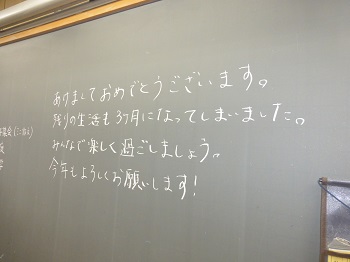 あけましておめでとうございます。
残りの生活も3ヶ月になってしまいました。
みんなで楽しく過ごしましょう。
今年もよろしくお願いします!